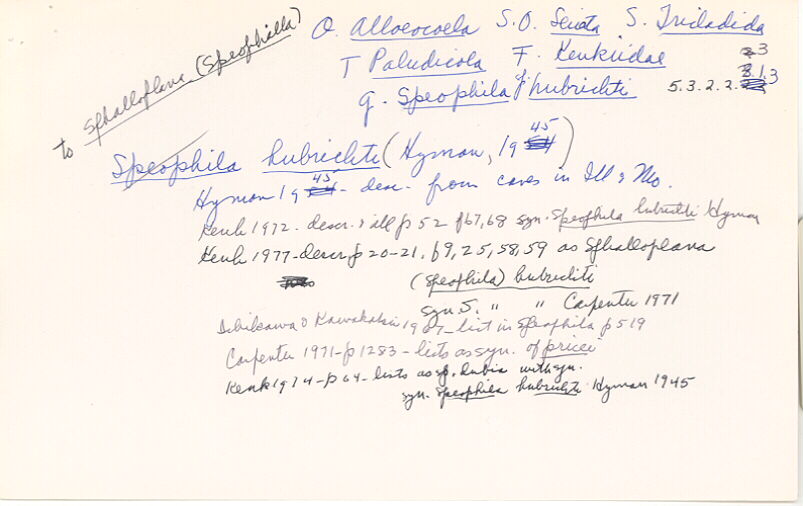 O. Alloeocoela S.O. Seriata S. Tricladida
to Sphalloplana (Speophila)
T Paludicola F. Kenkiidae
g. Speophila hubrichti 5.3.2.2. 3 1.3
Speophila hubrichti (Hyman, 1945)
Hyman 1945 - descr. from caves in Ill & Mo.
Kenk 1972 - descr. & ill p 52 f67,68 syn. Speophila hubrichti Hyman
Kenk 1977 - descr p 20-21, f9, 25, 58, 59 as Sphalloplana
(Speophila) hubrichti
syn. S. " " Carpenter 1971
Ichikawa & Kawakatsu 1967 - list in Speophila p 519
Carpenter 1971 - p 1283 - lists as syn. of pricei
Kenk 1974 - p 64 - lists as sp. dubia with syn.
syn. Speophila hubrichti Hyman 1945